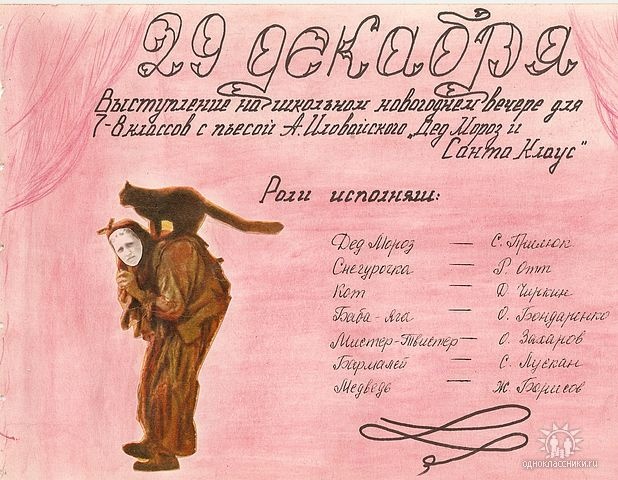 29 декабря
Выступление на школьном новогоднем вечере для
7-8 классов с пьесой А. Иловайского „Дед Мороз и
Санта Клаус"
Роли исполняли:
Дед Мороз — С. Прилюк
Снегурочка — Р. Отт
Кот — Д. Чиркин
Баба-Яга — О. Бондаренко
Мистер-Твистер — О. Захаров
Бармалей — С. Лускан
Медведь — Ж. Борисов
одноклассники.ru